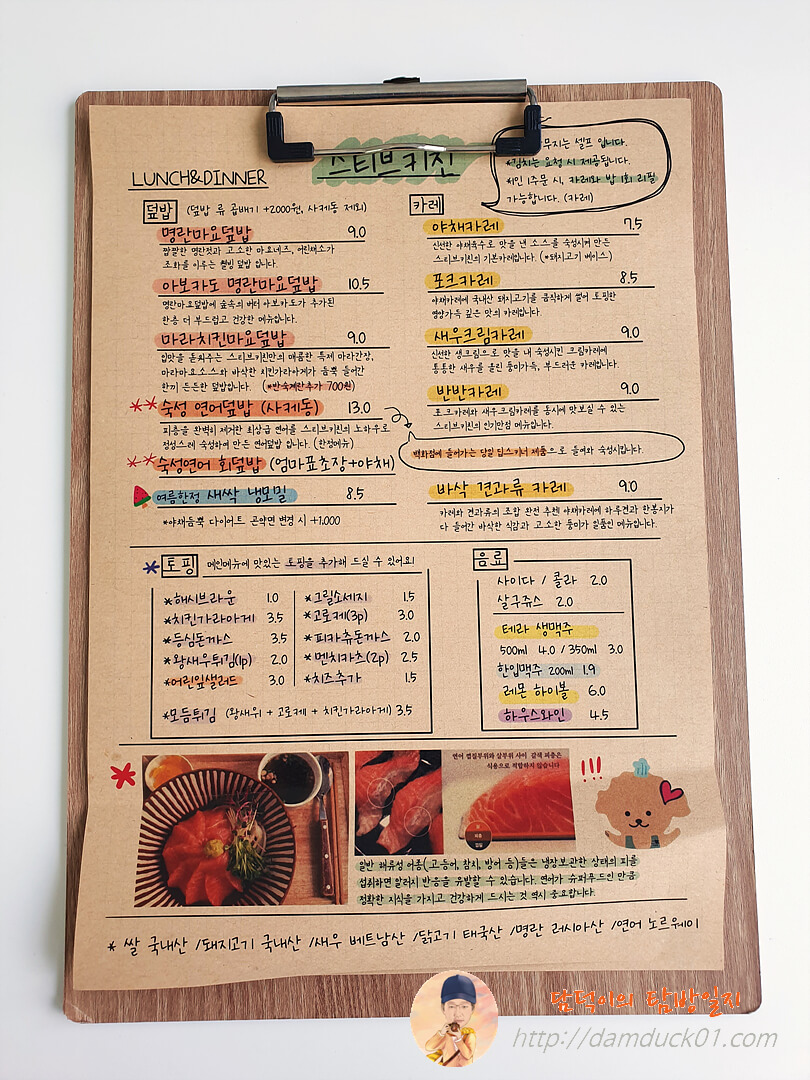 LUNCH&DINNER
스티브키친
무지는 셀프 입니다.
*김치는 요청 시 제공됩니다.
*1인 1주문 시, 카레와 밥 1회 리필
가능합니다. (카레)
덮밥 (덮밥 류 곱배기 +2000원, 사케동 제외)
명란마요덮밥 9.0
짭짤한 명란젓과 고소한 마요네즈, 어린채소가
조화를 이루는 웰빙 덮밥 입니다.
아보카도 명란마요덮밥 10.5
명란마요덮밥에 숲속의 버터 아보카도가 추가된
한층 더 부드럽고 건강한 메뉴입니다.
마라치킨마요덮밥 9.0
입맛을 돋워주는 스티브키친만의 매콤한 특제 마라간장,
마라마요소스와 바삭한 치킨가라아게가 듬뿍 들어간
한끼 든든한 덮밥입니다. (*반숙계란추가 700원)
**숙성 연어덮밥 (사케동) 13.0
피층을 완벽히 제거한 최상급 연어를 스티브키친의 노하우로
정성스레 숙성하여 만든 연어덮밥 입니다. (한정메뉴)
**숙성연어 회덮밥 (엄마표초장+야채)
여름한정 새싹 냉모밀 8.5
*야채듬뿍 다이어트 곤약면 변경 시 +1,000
카레
야채카레 7.5
신선한 야채육수로 맛을 낸 소스를 숙성시켜 만든
스티브키친의 기본카레입니다. (*돼지고기 베이스)
포크카레 8.5
야채카레에 국내산 돼지고기를 큼직하게 썰어 토핑한
영양가득 깊은 맛의 카레입니다.
새우크림카레 9.0
신선한 생크림으로 맛을 내 숙성시킨 크림카레에
통통한 새우를 올린 풍미가득, 부드러운 카레입니다.
반반카레 9.0
포크카레와 새우크림카레를 동시에 맛보실 수 있는
스티브키친의 인기만점 메뉴입니다.
백화점에 들어가는 당일 딥스키너 제품으로 들어와 숙성시킵니다.
바삭 견과류 카레 9.0
카레와 견과류의 조합 완전 추천! 야채카레에 하루견과 한봉지가
다 들어간 바삭한 식감과 고소한 풍미가 일품인 메뉴입니다.
*토핑 메인메뉴에 맛있는 토핑을 추가해 드실 수 있어요!
*해시브라운 1.0
*치킨가라아게 3.5
*등심돈까스 3.5
*왕새우튀김(1p) 2.0
*어린잎샐러드 3.0
*그릴소세지 1.5
*고로케(3p) 3.0
*피카츄돈까스 2.0
*멘치카츠(2p) 2.5
*치즈추가 1.5
*모듬튀김 (왕새우 + 고로케 + 치킨가라아게) 3.5
음료
사이다 / 콜라 2.0
살구쥬스 2.0
테라 생맥주
500ml 4.0 / 350ml 3.0
한입맥주 200ml 1.9
레몬 하이볼 6.0
하우스와인 4.5
*
연어 껍질부위와 살부위 사이 갈색 피층은
식용으로 적합하지 않습니다
피층
껍질
!!!
일반 해류성 어종(고등어, 참치, 방어 등)들은 냉장보관한 상태의 피를
섭취하면 알러시 반응을 유발할 수 있습니다. 연어가 슈퍼푸드인 만큼
정확한 지식을 가지고 건강하게 드시는 것 역시 중요합니다.
* 쌀 국내산 /돼지고기 국내산 /새우 베트남산 /닭고기 태국산 /명란 러시아산 /연어 노르웨이
담덕이의 탐방일지
http://damduck01.com